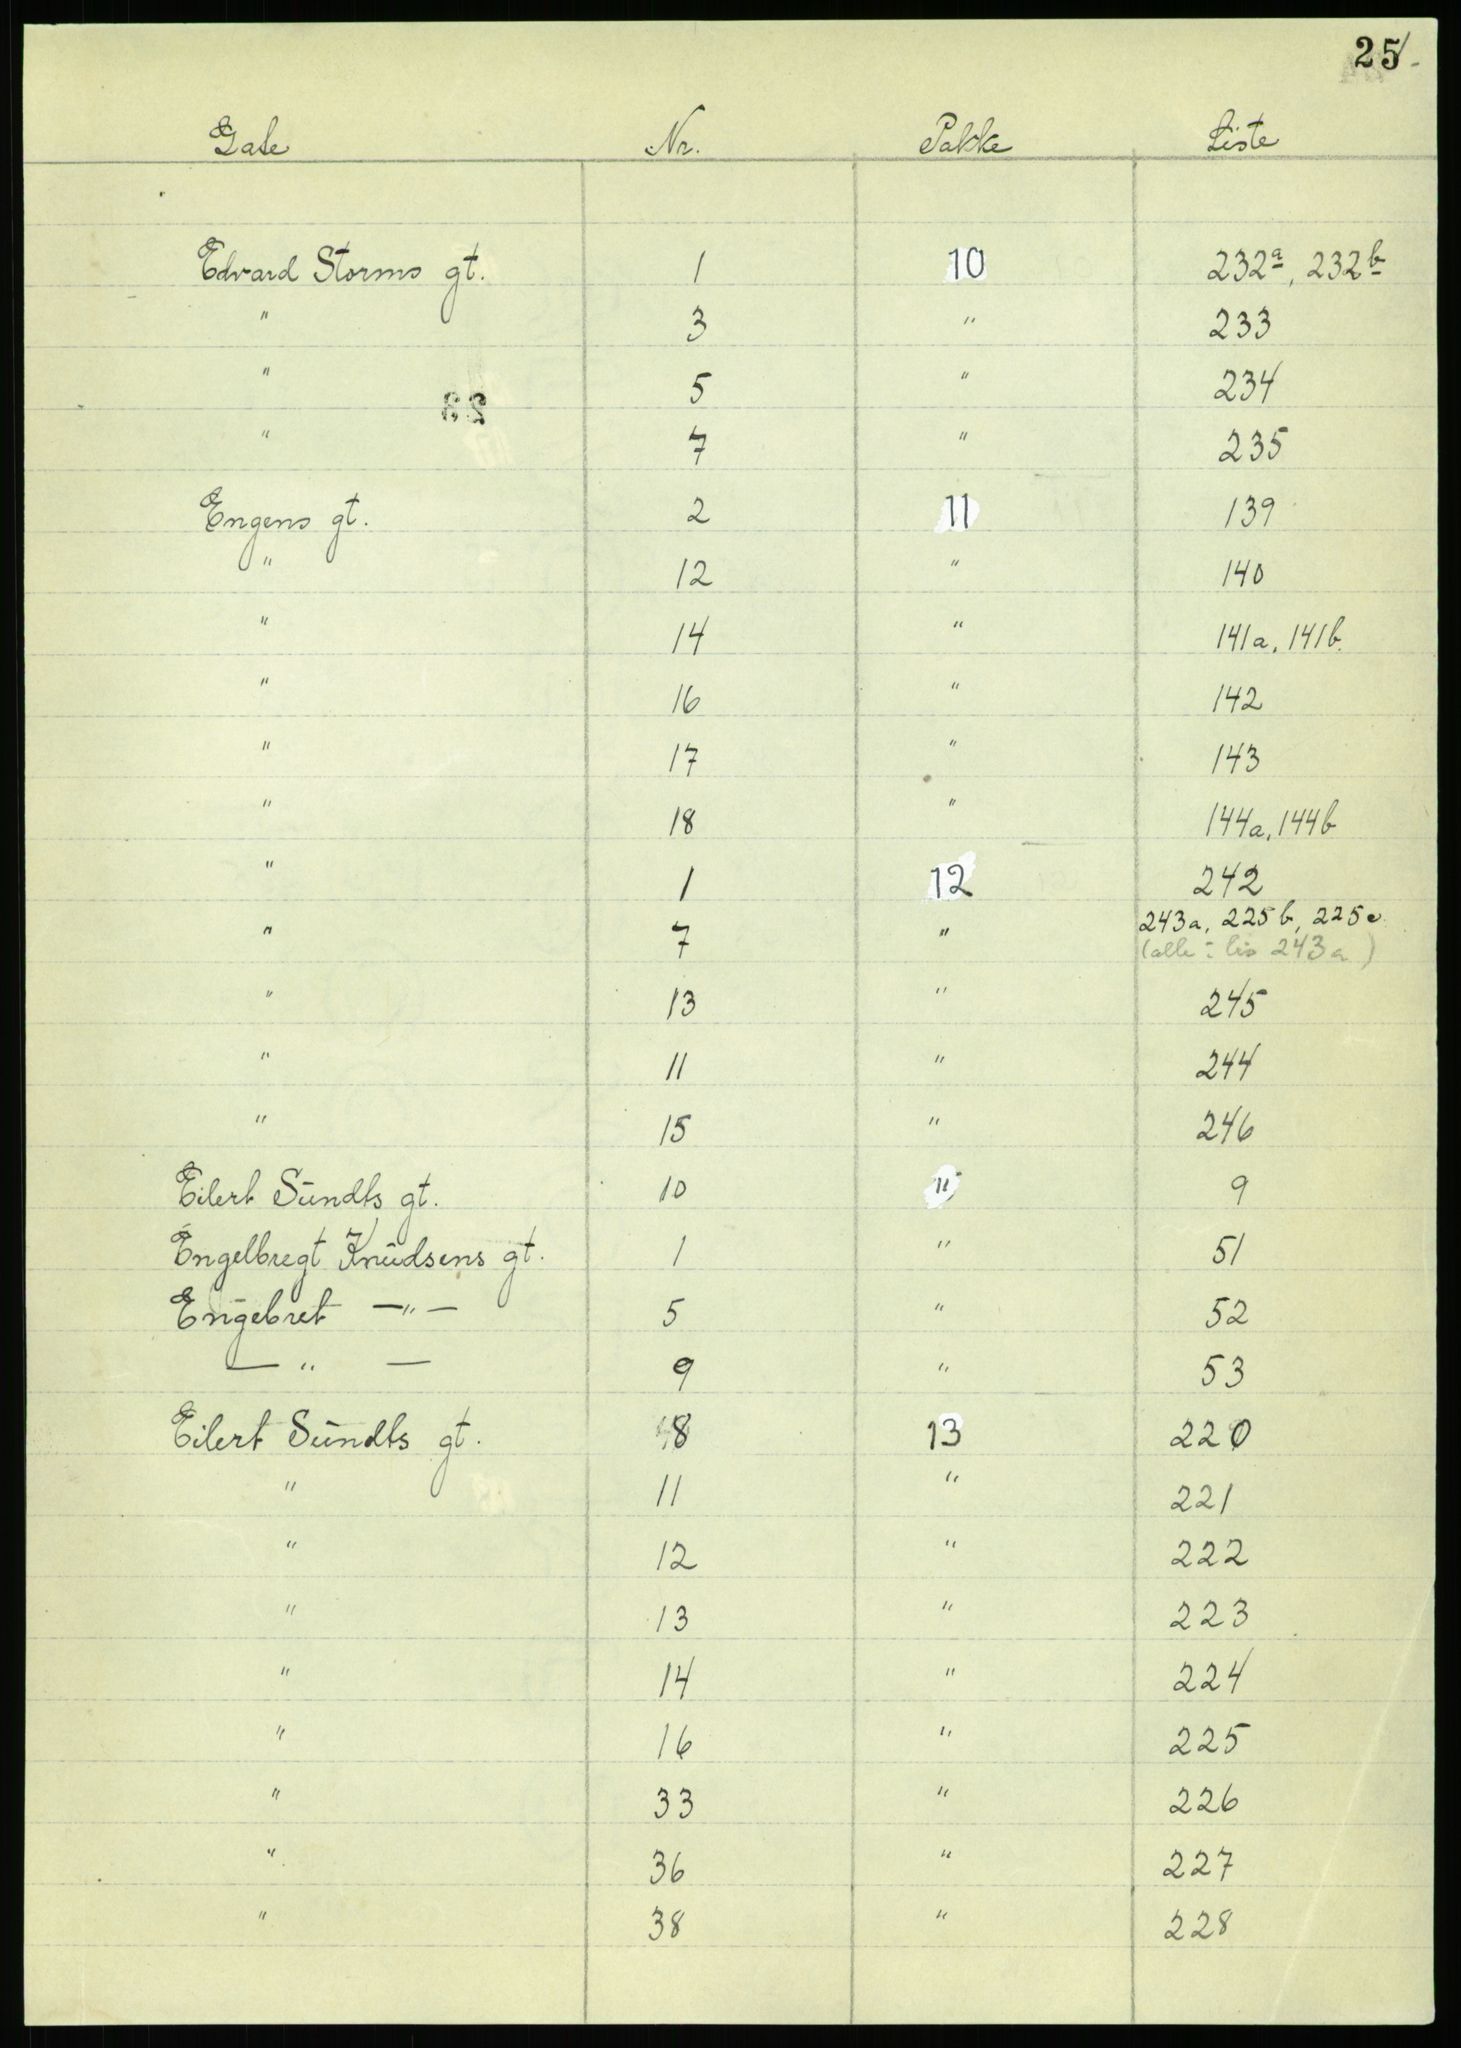 25
Gate Nr. Pakke Liste
Edvard Storms gt. 1 10 232a, 232b
" 3 " 233
" 5 " 234
" 7 " 235
Engens gt. 2 11 139
" 12 " 140
" 14 " 141a, 141b.
" 16 " 142
" 17 " 143
" 18 " 144a, 144b
" 1 12 242
" 7 " 243a, 225b, 225c
(alle : 243a)
" 13 " 245
" 11 " 244
" 15 " 246
Eilert Sundts gt. 10 " 9
Engelbregt Knudsens gt. 1 " 51
Engebret —"— 5 " 52
— " — 9 " 53
Eilert Sundts gt. 8 13 220
" 11 " 221
" 12 " 222
" 13 " 223
" 14 " 224
" 16 " 225
" 33 " 226
" 36 " 227
" 38 " 228